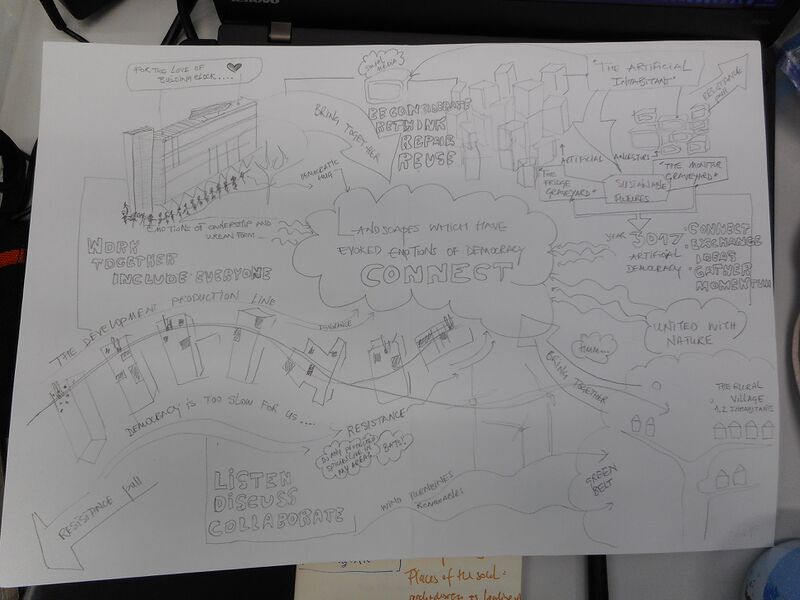 lenovo
FOR THE LOVE OF
BUILDING BLOCK....
SOCIAL
MEDIA
"THE ARTIFICIAL
INHABITANT"
RESISTANCE
pull
BRING TOGETHER
RETHINK
REPAIR
REUSE
DEMOCRATIC
ARTIFICIAL
ANCESTORS
"THE
FRIDGE
GRAVEYARD"
SUSTAINABLE
FUTURES
"THE MONITOR
GRAVEYARD"
EMOTIONS OF OWNERSHIP AND
URBAN FORM
LANDSCAPES WHICH HAVE
EVOKED EMOTIONS OF DEMOCRACY
CONNECT
WORK
TOGETHER
INCLUDE EVERYONE
YEAR 3017
ARTIFICIAL
DEMOCRACY
CONNECT
EXCHANGE
IDEAS
GATHER
MOMENTUM
UNITED WITH
NATURE
THE DEVELOPMENT PRODUCTION LINE
IGNORANCE
HMM...
BRING TOGETHER
THE RURAL
VILLAGE
1.2 INHABITANTS
DEMOCRACY IS TOO SLOW FOR US....
RESISTANCE
SPECIES LIVE IN
MY AREA?
BATS!
LISTEN
DISCUSS
COLLABORATE
WIND TURBINES
RENEWABLES
GREEN
BELT
RESISTANCE pull
Places of the soul